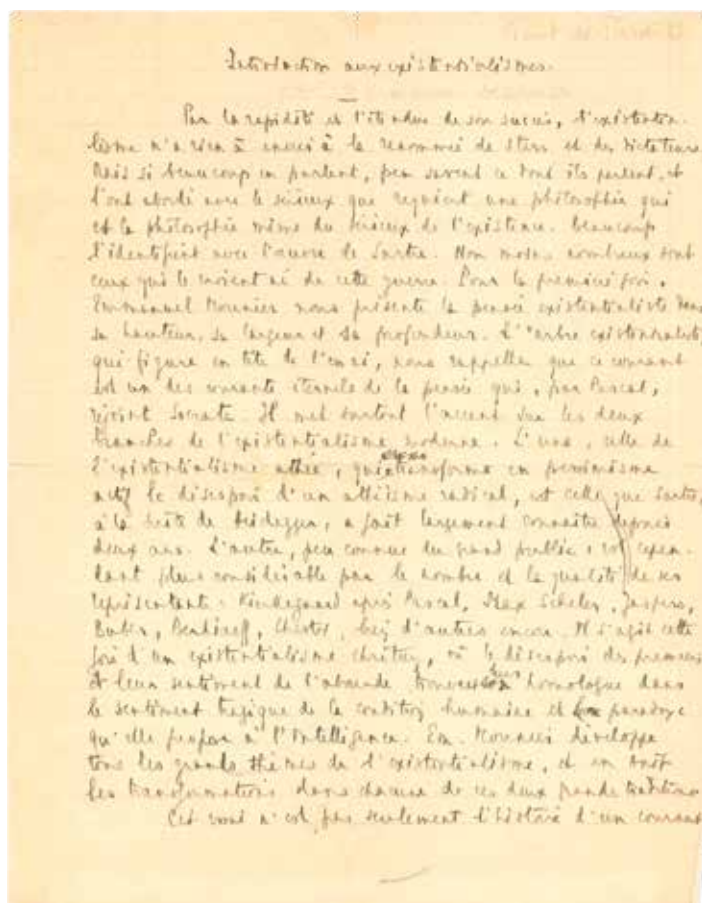 Introduction aux existentialismes.
Par la rapidité et l'étendue de son succès, l'existentia-
lisme n'a rien à envier à la renommée de stars et des dictateurs.
Mais si beaucoup en parlent, peu savent ce dont ils parlent, et
l'ont abordé avec le sérieux que requiert une philosophie qui
est la philosophie même du sérieux de l'existence. Beaucoup
l'identifient avec l'œuvre de Sartre. Non moins nombreux sont
ceux qui le croient né de cette guerre. Pour la première fois,
Emmanuel Mounier nous présente la pensée existentialiste dans
sa hauteur, sa largeur et sa profondeur. L'"arbre existentialiste"
qui figure en tête de l'essai, nous rappelle que ce courant
est un des courants éternels de la pensée qui, par Pascal,
rejoint Socrate. Il met surtout l'accent sur les deux
branches de l'existentialisme moderne. L'une, celle de
l'existentialisme athée, qui transforme en pessimisme
actif le désespoir d'un athéisme radical, est celle que Sartre,
à la suite de Heidegger, a fait largement connaître depuis
deux ans. L'autre, peu connue du grand public, est cepen-
dant plus considérable par le nombre et la qualité de ses
représentants. Kierkegaard après Pascal, Max Scheler, Jaspers,
Buber, Berdiaeff, Chestov, bien d'autres encore. Il s'agit cette
fois d'un existentialisme chrétien, où le désespoir des premiers
et leur sentiment de l'absurde trouvent leur homologue dans
le sentiment tragique de la condition humaine et paradoxe
qu'elle propose à l'Intelligence. Em. Mounier développe
tous les grands thèmes de l'existentialisme, et en suit
les transformations dans chacune de ces deux grandes traditions.
Cet essai n'est pas seulement l'histoire d'un courant